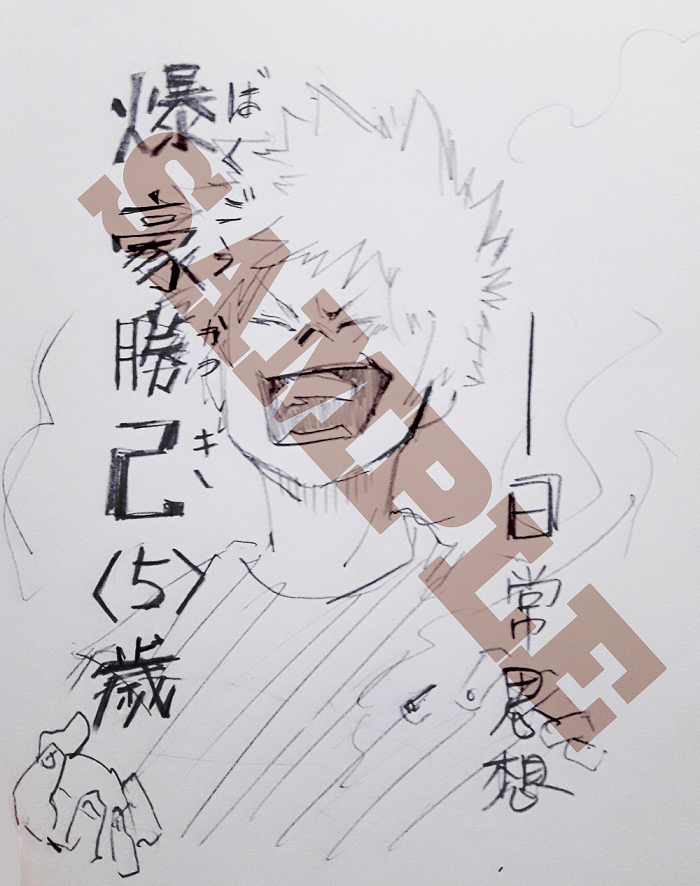 —日常思想
ばくごう かつき
爆豪勝己〈5〉歳
SAMPLE